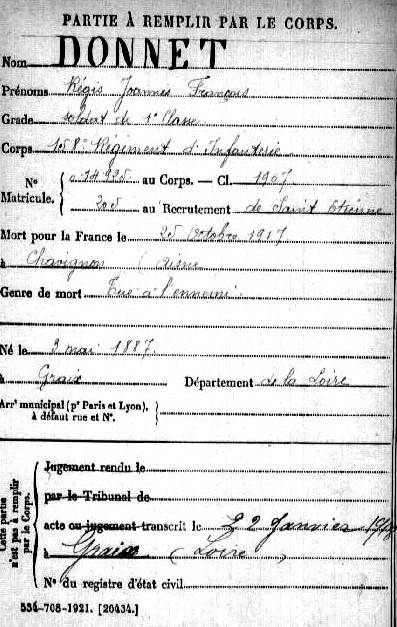 PARTIE À REMPLIR PAR LE CORPS.
Nom DONNET
Prénoms Régis Joannes François
Grade soldat de 1e Classe
Corps 158e Régiment d'Infanterie
No Matricule. 14925 au Corps. — Cl. 1907
205 au Recrutement de Saint Etienne
Mort pour la France le 25 Octobre 1917
à Chavignon (Aisne
Genre de mort Tué à l'ennemi
Né le 3 mai 1887
à Graix Département de la Loire
Arrt municipal (pr Paris et Lyon),
à défaut rue et No.
Cette partie
n'est pas à remplir
par le Corps.
Jugement rendu le
par le Tribunal de
acte ou jugement transcrit le 22 Janvier
à Graix (Loire)
No du registre d'état civil
534-708-1921. [26434.]